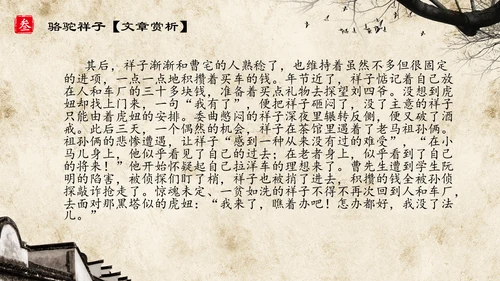 叁 骆驼祥子【文章赏析】
其后，祥子渐渐和曹宅的人熟稔了，也维持着虽然不多但很固定
的进项，一点一点地积攒着买车的钱。年节近了，祥子惦记着自己放
在人和车厂的三十多块钱，准备着买点礼物去探望刘四爷。没想到虎
妞却找上门来，一句“我有了”，便把祥子砸闷了，没了主意的祥子
只能由着虎妞的安排。委曲憋闷的祥子深夜里辗转反侧，便又破了酒
戒。此后三天，一个偶然的机会，祥子在茶馆里遇着了老马祖孙俩。
祖孙俩的悲惨遭遇，让祥子“感到一种从来没有过的难受”，“在小
马儿身上，他似乎看见了自己的过去；在老者身上，似乎看到了自己
的将来！”他开始怀疑起自己拉洋车的理想来了。曹先生遭到学生阮
明的陷害，被侦探们盯了梢，祥子也被捎了进去，积攒的钱全被孙侦
探敲诈抢走了。惊魂未定、一贫如洗的祥子不得不再次回到人和车厂，
去面对那黑塔似的虎妞：“我来了，瞧着办吧！怎办都好，我没了法
儿。”